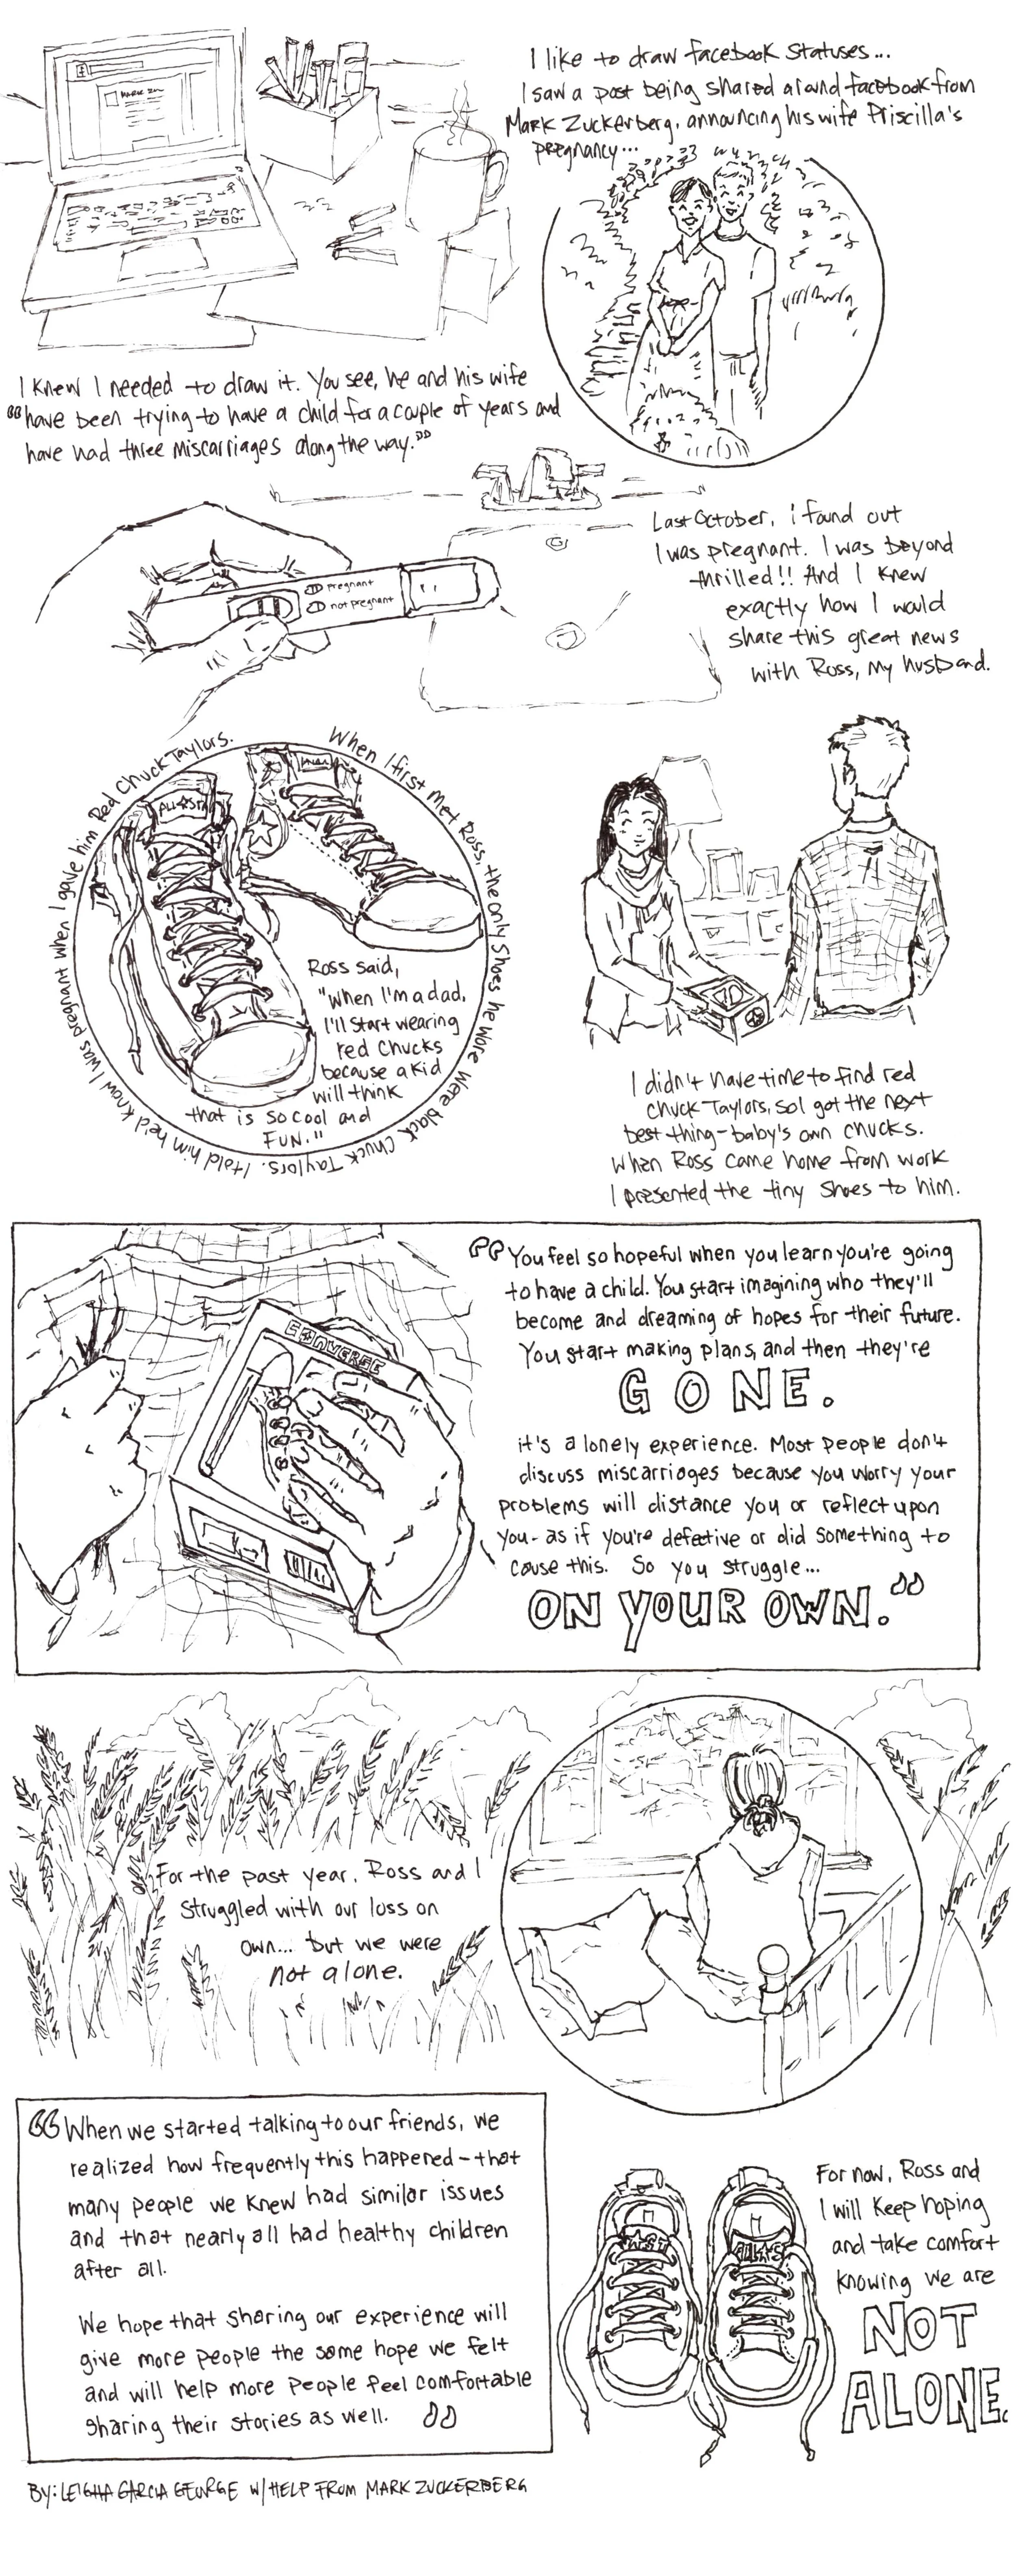 I like to draw facebook statuses...
I saw a post being shared around facebook from
Mark Zuckerberg, announcing his wife Priscilla's
pregnancy...
MARK ZU
I knew I needed to draw it. You see, he and his wife
"have been trying to have a child for a couple of years and
have had three miscarriages along the way."
Last October, i found out
I was pregnant. I was beyond
thrilled!! And I knew
exactly how I would
share this great news
with Ross, my husband.
pregnant
not pregnant
When I first met Ross, the only shoes he wore were black Chuck Taylors. I told him he'd know I was pregnant when I gave him Red Chuck Taylors.
Ross said,
"When I'm a dad,
I'll start wearing
red chucks
because a kid
will think
that is so cool and
FUN."
I didn't have time to find red
Chuck Taylors, so I got the next
best thing - baby's own chucks.
When Ross came home from work
I presented the tiny shoes to him.
CONVERSE
"You feel so hopeful when you learn you're going
to have a child. You start imagining who they'll
become and dreaming of hopes for their future.
You start making plans, and then they're
GONE.
it's a lonely experience. Most people don't
discuss miscarriages because you worry your
problems will distance you or reflect upon
you - as if you're defective or did something to
cause this. So you struggle...
ON YOUR OWN."
For the past year, Ross and I
struggled with our loss on
own... but we were
not alone.
"When we started talking to our friends, we
realized how frequently this happened - that
many people we knew had similar issues
and that nearly all had healthy children
after all.
We hope that sharing our experience will
give more people the same hope we felt
and will help more people feel comfortable
sharing their stories as well. "
For now, Ross and
I will keep hoping
and take comfort
knowing we are
NOT
ALONE.
BY: LEIGHA GARCIA GEORGE W/ HELP FROM MARK ZUCKERBERG